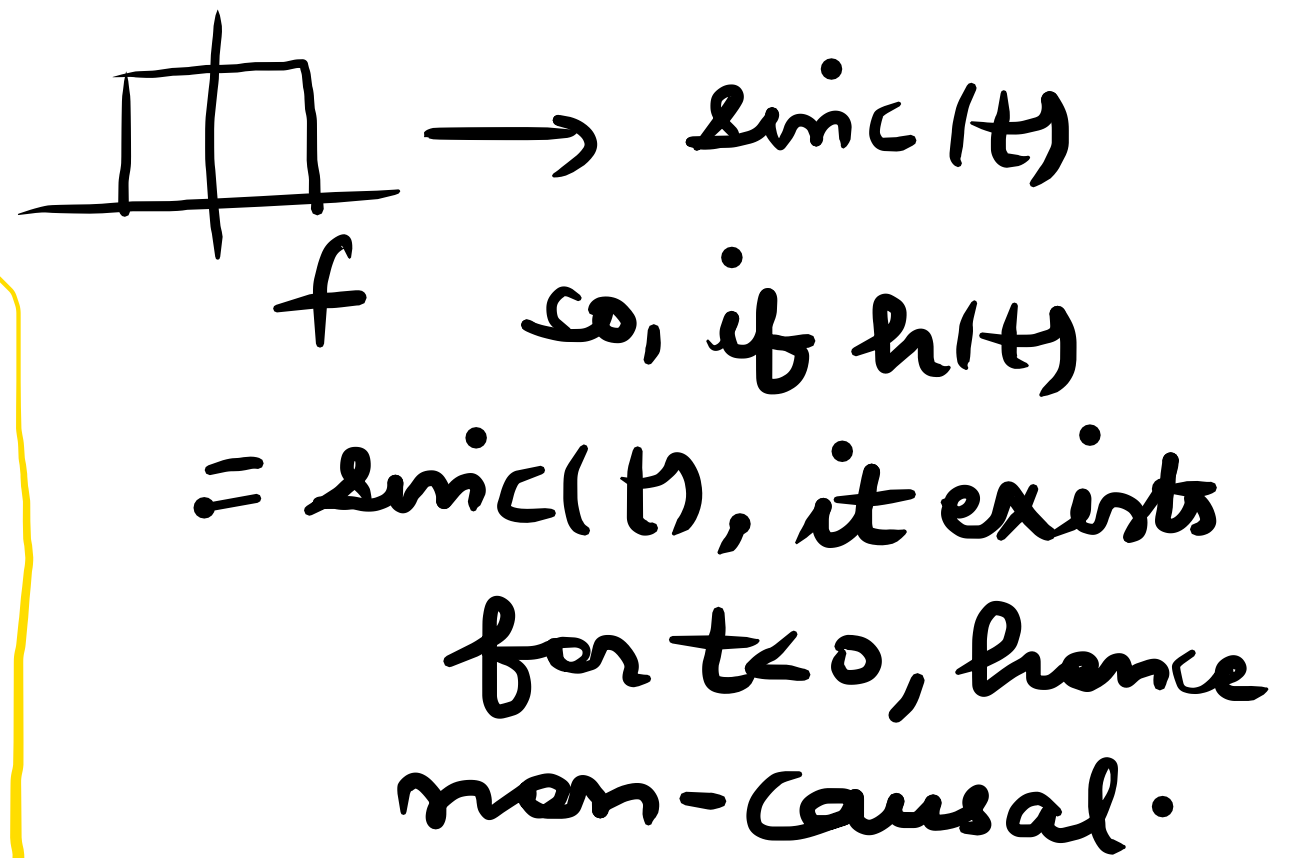 sinc(t)
f so, if h(t)
= sinc(t), it exists
for t<0, hence
non-causal.